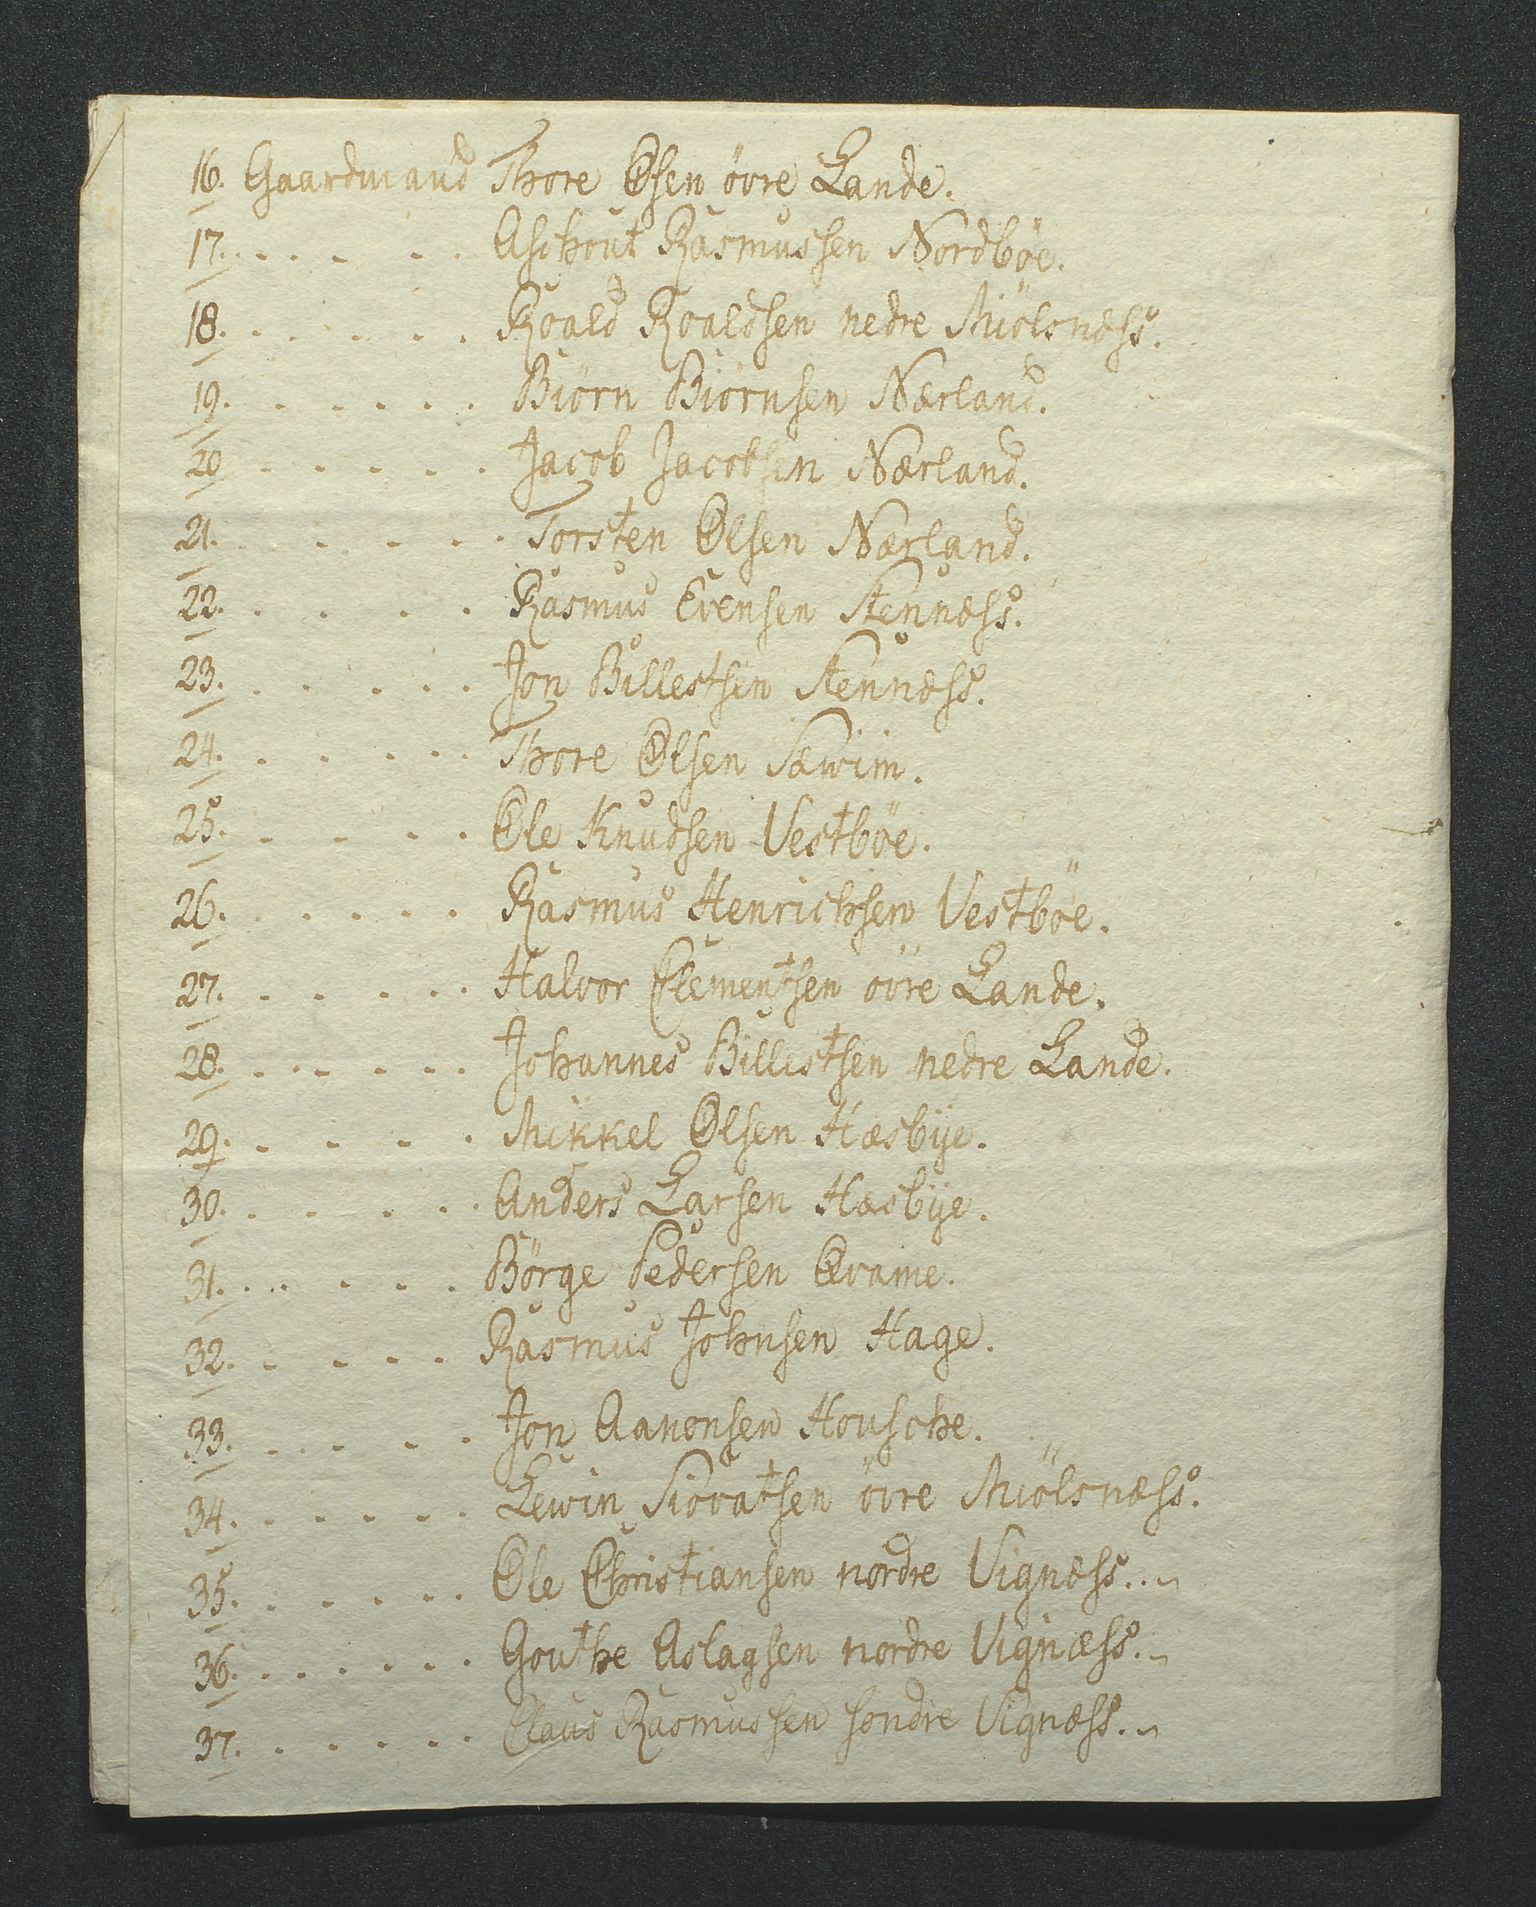 16. Gaardmand Thore Olsen övre Lande.
17. . . . . . Aschout Rasmussen Nordböe.
18. . . . . . Roald Roaldsen nedre Miölsnæss.
19. . . . . . Biörn Biörnsen Nærland.
20 . . . . . Jacob Jacobsen Nærland.
21. . . . . . Torsten Olsen Nærland.
22. . . . . Rasmus Evensen Stennæss.
23. . . . . . Jon Billestsen Stennæss.
24. . . . . . Thore Olsen Sæwim.
25. . . . . Ole Knudsen Vestböe.
26. . . . . . Rasmus Henrichsen Vestböe.
27. . . . . . Halvor Clementsen övre Lande.
28. . . . . . Johannes Billestsen nedre Lande.
29. . . . . Mikkel Olsen Hæsbÿe.
30. . . . . . Anders Larsen Hæsbÿe.
31. . . . . . Börge Pedersen Qvame.
32. . . . . Rasmus Johnsen Hage.
33. . . . . . Jon Aanensen Housche.
34. . . . . . Lewin Siovatsen övre Miölsnæss.
35. . . . . . Ole Christiansen nordre Vignæss.
36. . . . . . Gouthe Aslagsen nordre Vignæss.
37. . . . . . Claus Rasmussen söndre Vignæss.